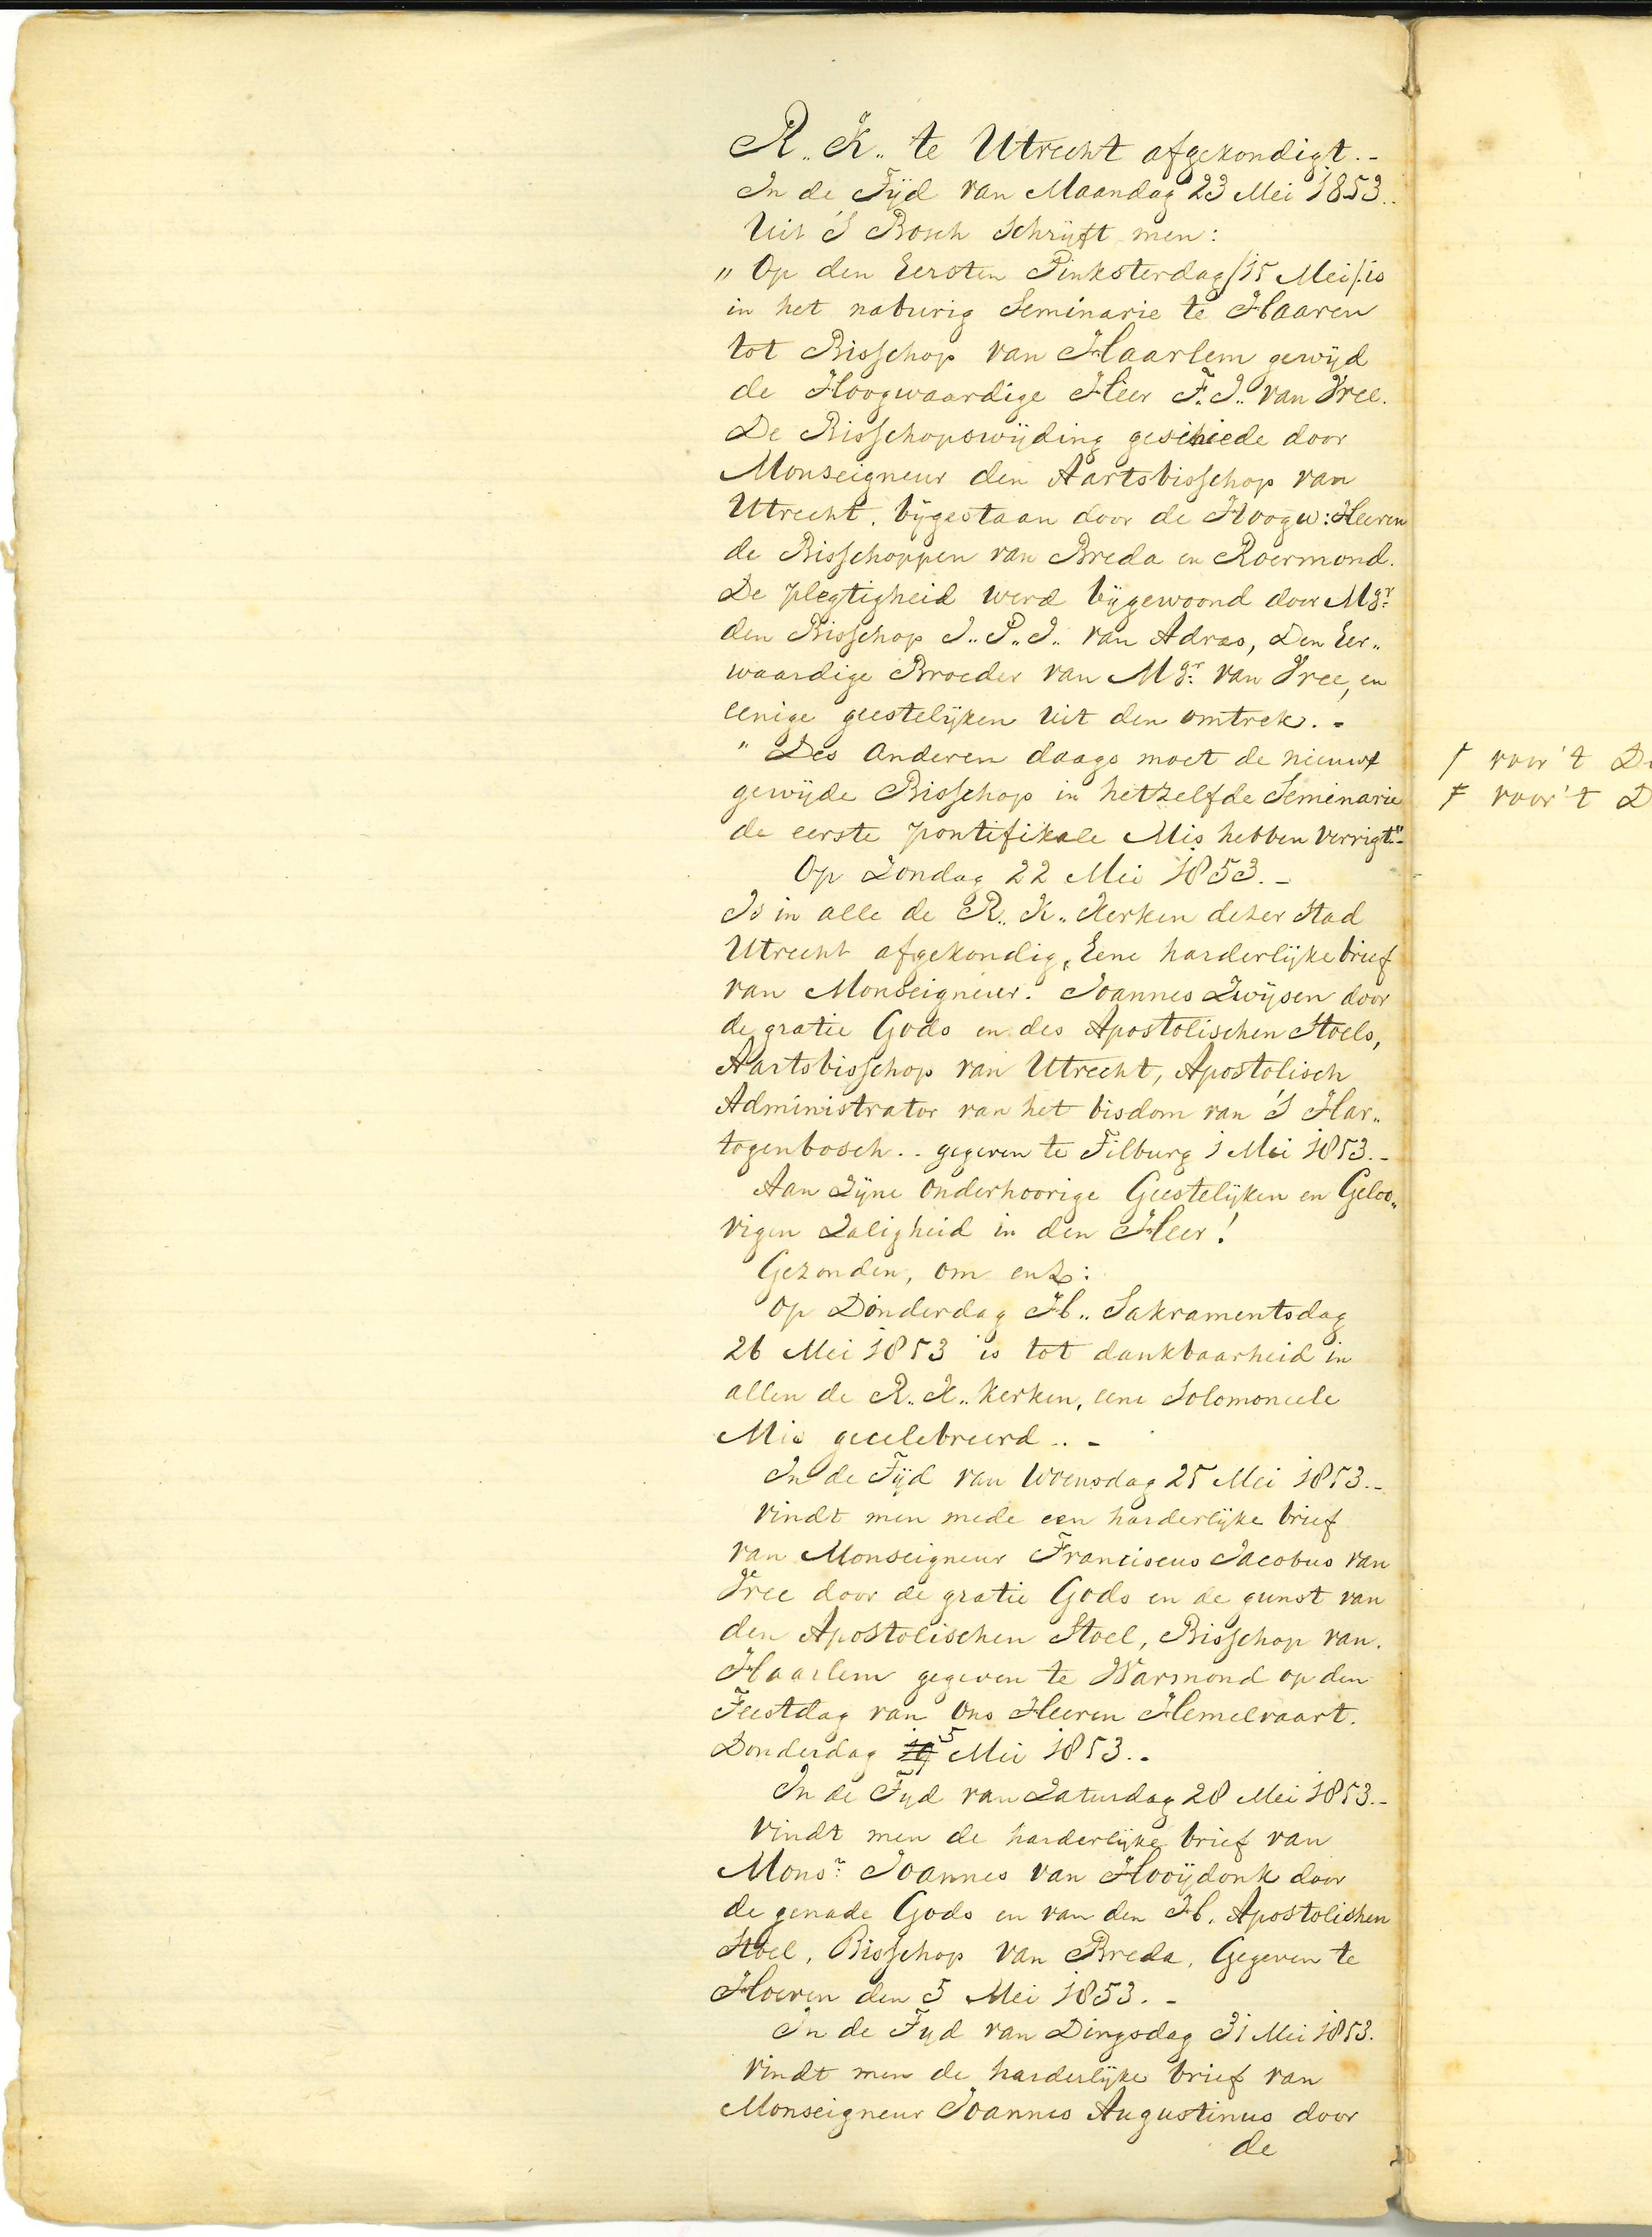 R.. K.. te Utrecht afgekondigt.-
In de Tijd van Maandag 23 Mei 1853..
Uit 'S Bosch Schrijft men:
„ Op den Eersten Pinksterdag/15 Mei/:is
in het naburig Seminarie te Haaren
tot Bisschop van Haarlem gewijd
de Hoogwaardige Heer F. J.. van Vree.
De Bisschopswijding geschiede door
Monseigneur den Aartsbisschop van
Utrecht. bijgestaan door de Hoogw: Heeren
de Bisschoppen van Breda en Roermond.
De plegtigheid werd bijgewoond door Mgr:
den Bisschop J.. P.. J.. van Adras, Den Eer„
waardige Broeder van Mgr: van Vree, en
eenige geestelijken uit den omtrek. -
" Des Anderen daags moet de nieuwt
gewijde Bisschop in hetzelfde Seminarie
de eerste pontifikale Mis hebben verrigt"-
Op Zondag 22 Mei 1853. -
Is in alle de R.. K.. Kerken dezer Stad
Utrecht afgekondig, Eene harderlijke brief
van Monseigneur. Joannes Zwijsen door
de gratie Gods en des Apostolischen Stoels,
Aartsbisschop van Utrecht, Apostolisch
Administrator van het bisdom van 'S Har„
togenbosch.. gegeven te Tilburg 1 Mei 1853.-
Aan Zijne Onderhoorige Geestelijken en Geloo„
vigen Zaligheid in den Heer!
Gezonden, om enz:
Op Donderdag H.. Sakramentsdag
26 Mei 1853 is tot dankbaarheid in
allen de R.. K.. Kerken, eene Solomoneele
Mis gecelebreerd.. -
In de Tijd van Woensdag 25 Mei 1853.-
vindt men mede een harderlijke brief
van Monseigneur Franciscus Jacobus van
Vree door de gratie Gods en de gunst van
den Apostolischen Stoel, Bisschop van.
Haarlem gegeven te Warmond op den
Feestdag van Ons Heeren Hemelvaart.
Donderdag 5 Mei 1853..
In de Tijd van Zaturdag 28 Mei 1853.-
Vindt men de harderlijke brief van
Monsr: Joannes van Hooijdonk door
de genade Gods en van den H. Apostolishen
Stoel, Bisschop van Breda, Gegeven te
Hoeven den 5 Mei 1853. -
In de Tijd van Dingsdag 31 Mei 1853.
vindt men de harderlijke brief van
Monseigneur Joannes Augustinus door
de
voor 't D
voor 't D